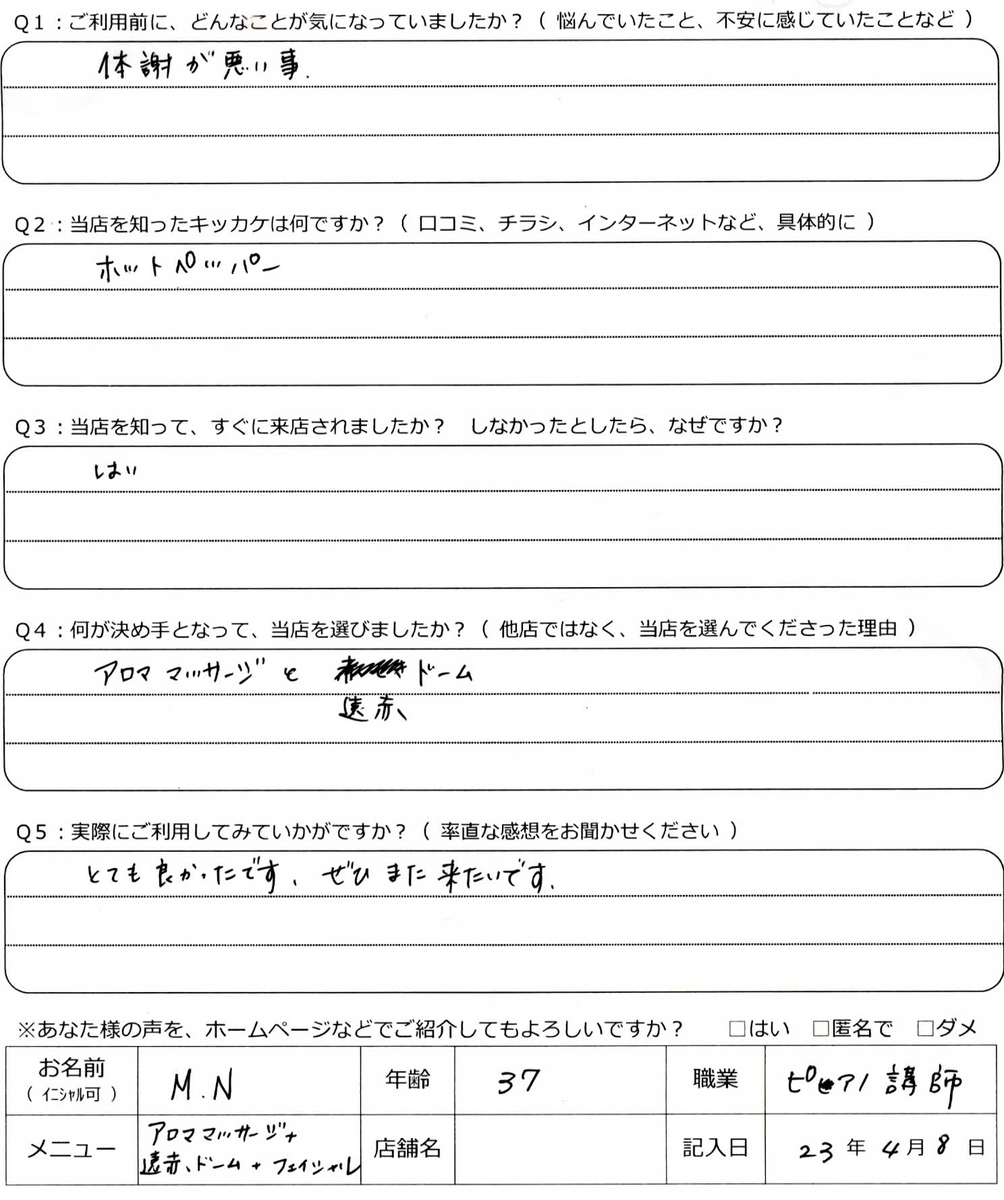 Q1：ご利用前に、どんなことが気になっていましたか？（ 悩んでいたこと、不安に感じていたことなど ）
体謝が悪い事.
Q2：当店を知ったキッカケは何ですか？（ 口コミ、チラシ、インターネットなど、具体的に ）
ホットペッパー
Q3：当店を知って、すぐに来店されましたか？　しなかったとしたら、なぜですか？
はい
Q4：何が決め手となって、当店を選びましたか？（ 他店ではなく、当店を選んでくださった理由 ）
アロママッサージと ドーム
遠赤、
Q5：実際にご利用してみていかがですか？（ 率直な感想をお聞かせください ）
とても良かったです、ぜひまた来たいです.
※あなた様の声を、ホームページなどでご紹介してもよろしいですか？　□はい　□匿名で　□ダメ
お名前
（ ｲﾆｼｬﾙ可 ）
M.N
年齢
37
職業
ピアノ講師
メニュー
アロママッサージ+
遠赤、ドーム + フェイシャル
店舗名
記入日
23年4月8日